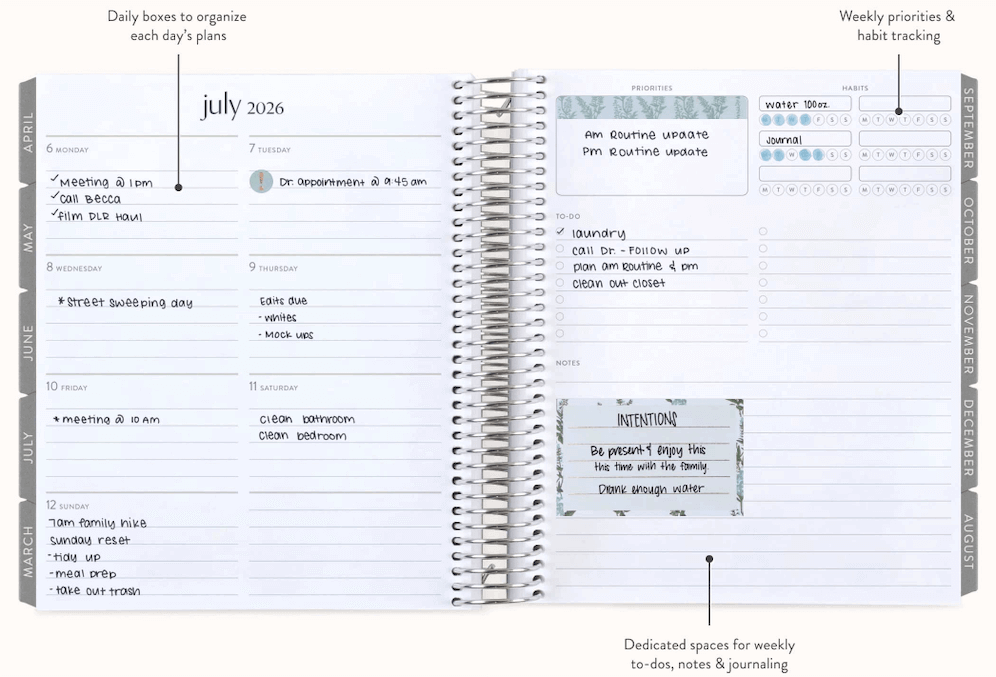 Daily boxes to organize
each day's plans
Weekly priorities &
habit tracking
july 2026
6 MONDAY
✓Meeting @ 1pm
✓call Becca
✓film DLR Haul
7 TUESDAY
Dr. appointment @ 9:45 am
8 WEDNESDAY
*Street sweeping day
9 THURSDAY
Edits due
- whites
- Mock ups
10 FRIDAY
*meeting @ 10 Am
11 SATURDAY
clean bathroom
clean bedroom
12 SUNDAY
7am family hike
sunday reset
-tidy up
-meal prep
-take out trash
APRIL
MAY
JUNE
JULY
MARCH
PRIORITIES
Am Routine update
Pm Routine update
HABITS
water 100oz.
M T W T F S S
M T W T F S S
Journal
M T W T F S S
M T W T F S S
M T W T F S S
M T W T F S S
TO-DO
✓ laundry
call Dr. - Follow up
plan am Routine & pm
clean out closet
NOTES
INTENTIONS
Be present & enjoy this
this time with the family.
Drank enough water
SEPTEMBER
OCTOBER
NOVEMBER
DECEMBER
AUGUST
Dedicated spaces for weekly
to-dos, notes & journaling